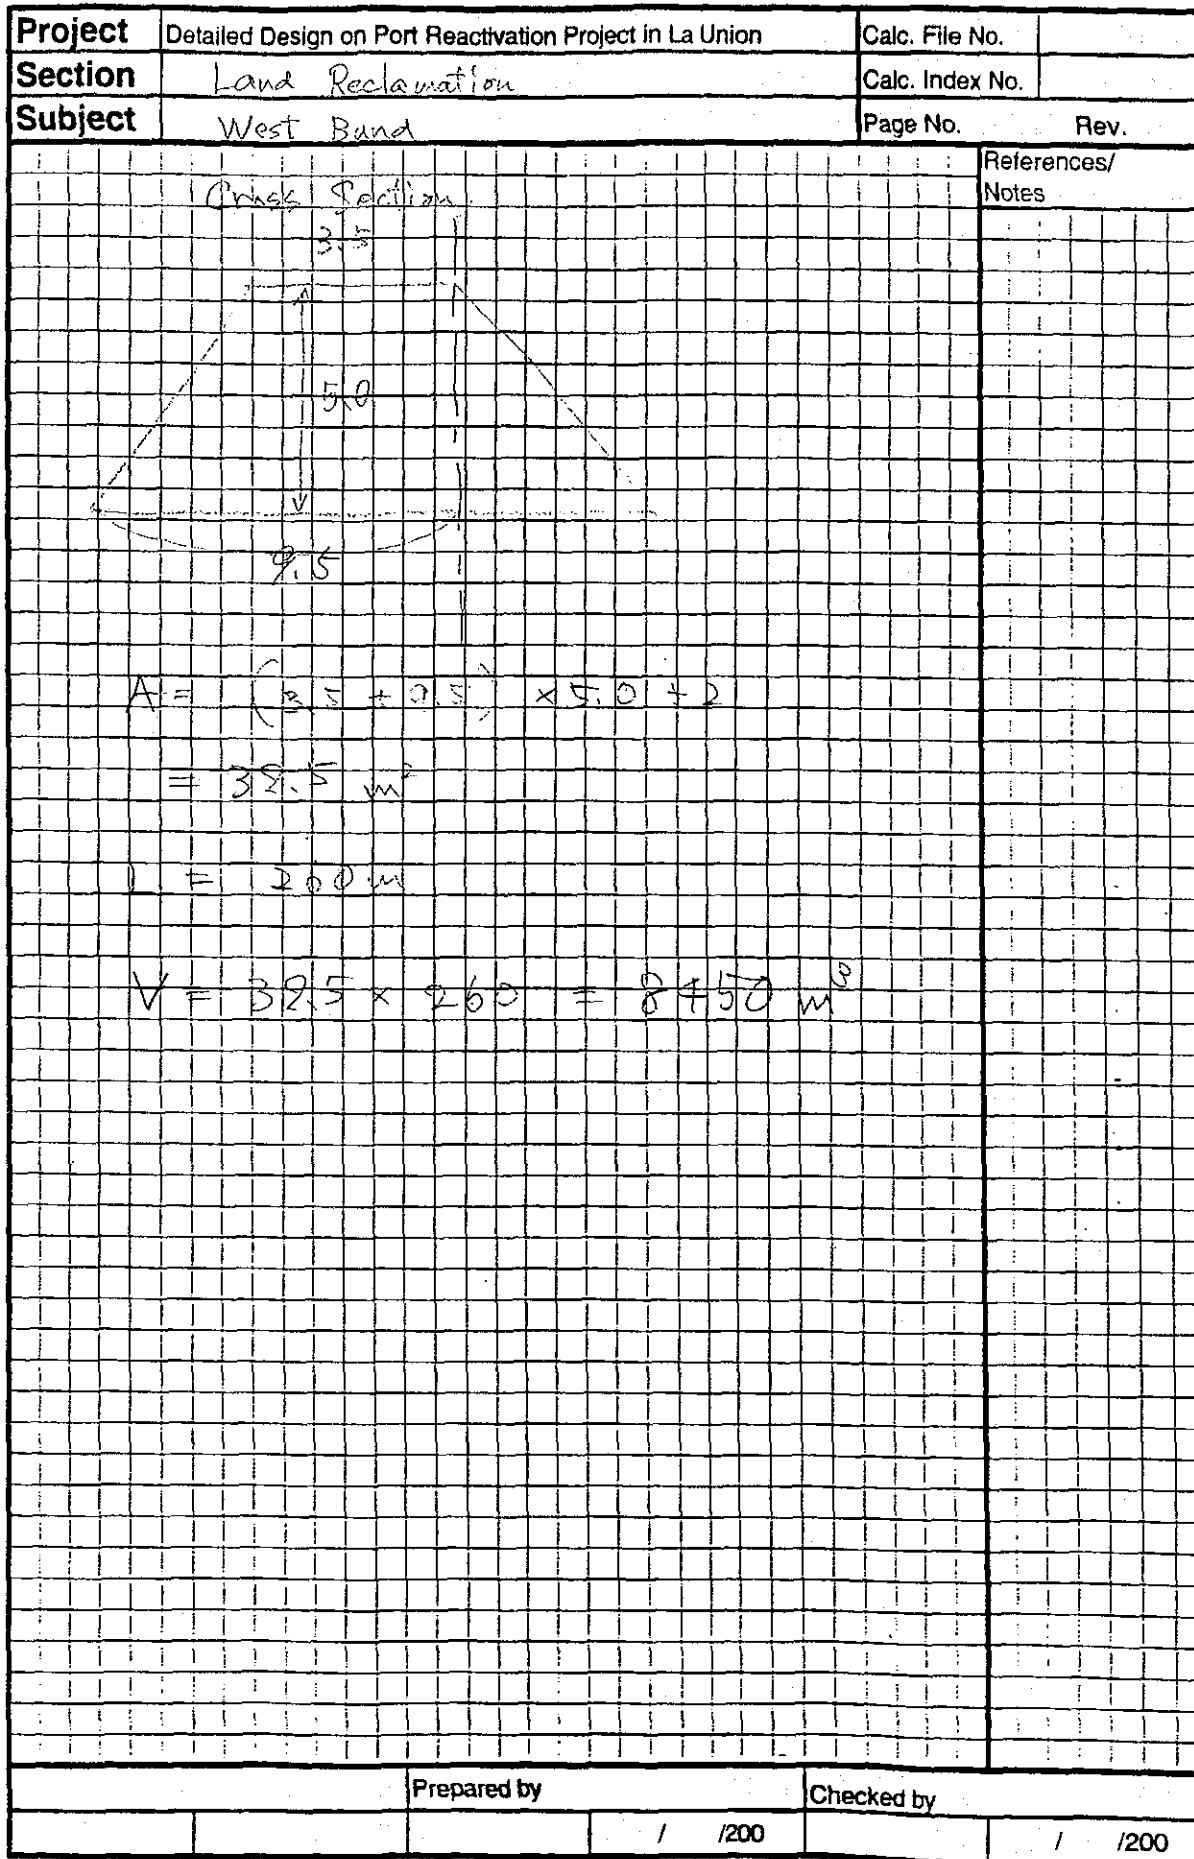 Project Detailed Design on Port Reactivation Project in La Union Calc. File No.
Section Land Reclamation Calc. Index No.
Subject West Bund Page No. Rev.
References/
Notes
Cross Section
3.5
5.0
9.5
A = (3.5 + 9.5) × 5.0 ÷ 2
= 32.5 m²
L = 260 m
V = 32.5 × 260 = 8450 m³
Prepared by Checked by
/ /200 / /200